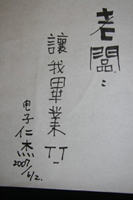 老闆：
讓我畢業 T_T
电子 仁杰
2007
6/2.